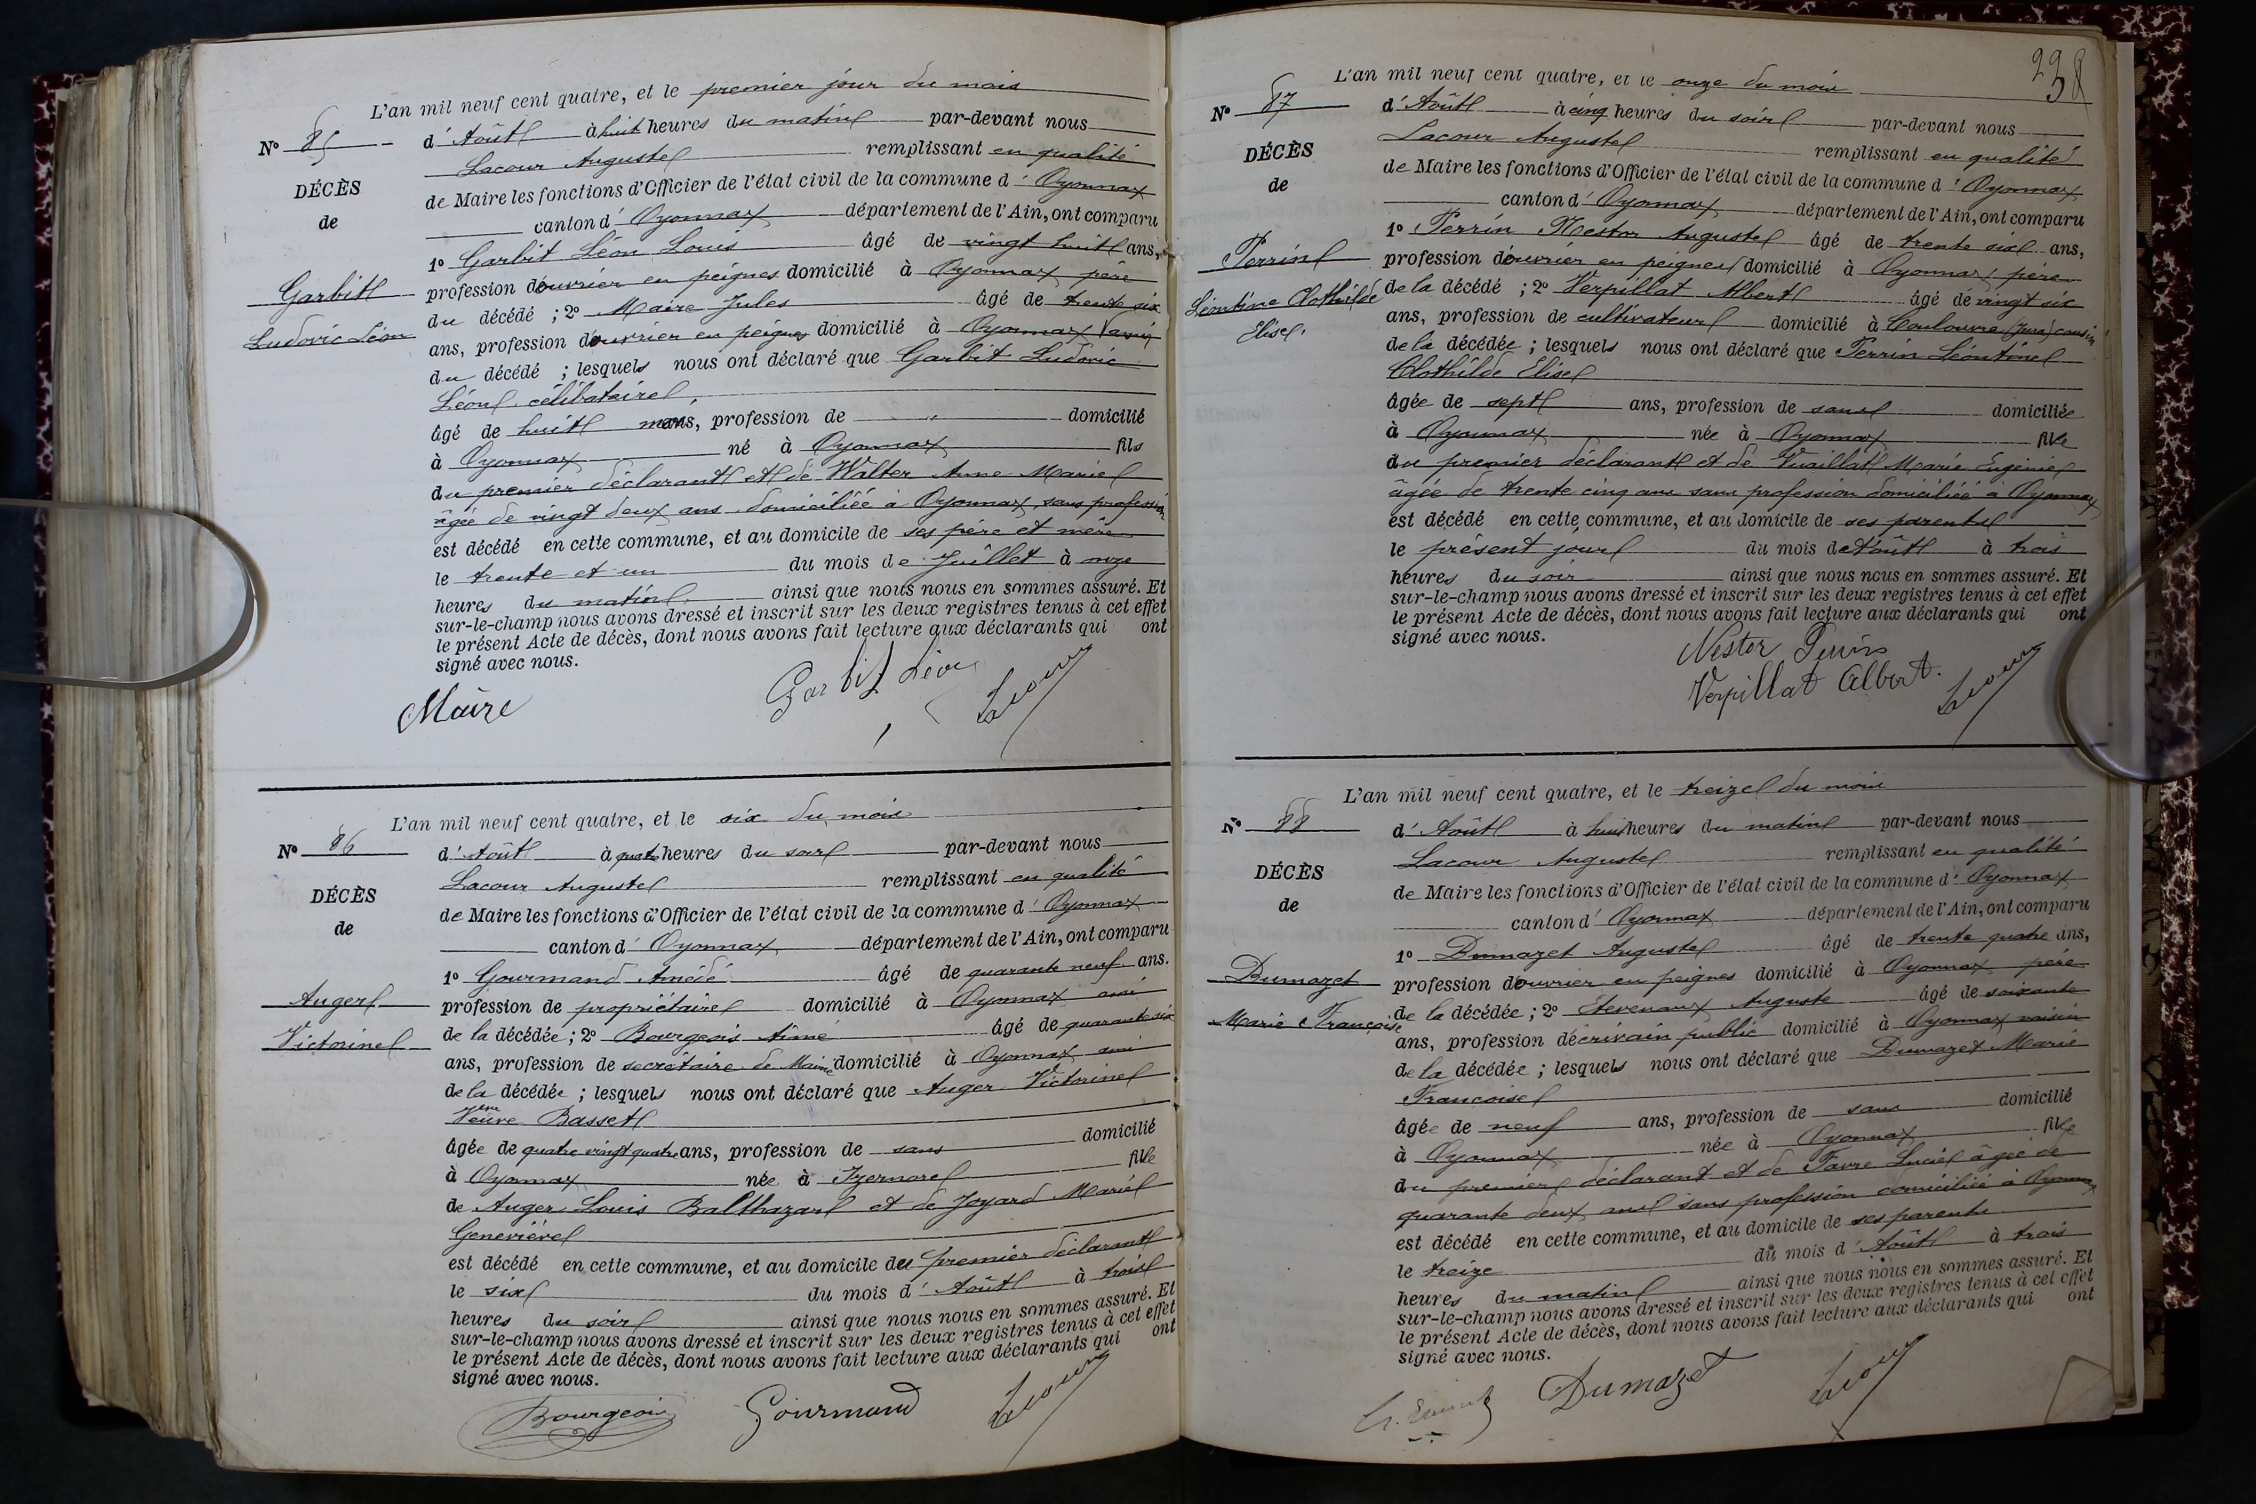 L'an mil neuf cent quatre, et le premier jour du mois
N° 85
d'Août à huit heures du matin par-devant nous
Lacour Auguste remplissant en qualité
DÉCÈS
de Maire les fonctions d'Officier de l'état civil de la commune d'Oyonnax
de
canton d'Oyonnax département de l'Ain, ont comparu
1° Garbit Léon Louis âgé de vingt huit ans,
Garbit
profession d'ouvrier en peignes domicilié à Oyonnax père
du décédé ; 2° Maire Jules âgé de trente six
Ludovic Léon
ans, profession d'ouvrier en peignes domicilié à Oyonnax ami
du décédé ; lesquels nous ont déclaré que Garbit Ludovic
Léon, célibataire,
âgé de huit mois, profession de " domicilié
à Oyonnax né à Oyonnax fils
du premier déclarant et de Walter Anne Marie
âgée de vingt deux ans domiciliée à Oyonnax, sans profession
est décédé en cette commune, et au domicile de ses père et mère
le trente et un du mois de Juillet à onze
heures du matin ainsi que nous nous en sommes assuré. Et
sur-le-champ nous avons dressé et inscrit sur les deux registres tenus à cet effet
le présent Acte de décès, dont nous avons fait lecture aux déclarants qui ont
signé avec nous.
Maire Garbit Léon Lacour
L'an mil neuf cent quatre, et le six du mois
N° 86
d'Août à quatre heures du soir par-devant nous
Lacour Auguste remplissant en qualité
DÉCÈS
de Maire les fonctions d'Officier de l'état civil de la commune d'Oyonnax
de
canton d'Oyonnax département de l'Ain, ont comparu
1° Gourmand Amédé âgé de quarante neuf ans.
Auger
profession de propriétaire domicilié à Oyonnax ami
Victorine
de la décédée ; 2° Bourgeois Aimé âgé de quarante six
ans, profession de secrétaire de Mairie domicilié à Oyonnax ami
de la décédée ; lesquels nous ont déclaré que Auger Victorine
Veuve Basset
âgée de quatre vingt quatre ans, profession de sans domicilié
à Oyonnax née à Izernore fille
de Auger Louis Balthazar et de Joyard Marie
Geneviève
est décédé en cette commune, et au domicile du premier déclarant
le six du mois d'Août à trois
heures du soir ainsi que nous nous en sommes assuré. Et
sur-le-champ nous avons dressé et inscrit sur les deux registres tenus à cet effet
le présent Acte de décès, dont nous avons fait lecture aux déclarants qui ont
signé avec nous.
Bourgeois Gourmand Lacour
238
L'an mil neuf cent quatre, et le onze du mois
N° 87
d'Août à cinq heures du soir par-devant nous
Lacour Auguste remplissant en qualité
DÉCÈS
de Maire les fonctions d'Officier de l'état civil de la commune d'Oyonnax
de
canton d'Oyonnax département de l'Ain, ont comparu
1° Perrin Nestor Auguste âgé de trente six ans,
Perrin
profession d'ouvrier en peignes domicilié à Oyonnax père
Léontine Clothilde
de la décédé ; 2° Verpillat Albert âgé de vingt six
Elise.
ans, profession de cultivateur domicilié à Coulouvre (Jura) cousin
de la décédée ; lesquels nous ont déclaré que Perrin Léontine
Clothilde Elise
âgée de sept ans, profession de sans domiciliée
à Oyonnax née à Oyonnax fille
du premier déclarant et de Vuaillat Marie Eugénie
âgée de trente cinq ans sans profession domiciliée à Oyonnax
est décédé en cette commune, et au domicile de ses parents
le présent jour du mois d'Août à trois
heures du soir ainsi que nous nous en sommes assuré. Et
sur-le-champ nous avons dressé et inscrit sur les deux registres tenus à cet effet
le présent Acte de décès, dont nous avons fait lecture aux déclarants qui ont
signé avec nous.
Nestor Perrin
Verpillat Albert. Lacour
L'an mil neuf cent quatre, et le treize du mois
N° 88
d'Août à huit heures du matin par-devant nous
Lacour Auguste remplissant en qualité
DÉCÈS
de Maire les fonctions d'Officier de l'état civil de la commune d'Oyonnax
de
canton d'Oyonnax département de l'Ain, ont comparu
1° Dumazet Auguste âgé de trente quatre ans,
Dumazet
profession d'ouvrier en peignes domicilié à Oyonnax père
Marie Françoise
de la décédée ; 2° Etevenaux Auguste âgé de soixante
ans, profession d'écrivain public domicilié à Oyonnax voisin
de la décédée ; lesquels nous ont déclaré que Dumazet Marie
Françoise
âgée de neuf ans, profession de sans domicilié
à Oyonnax née à Oyonnax fille
du premier déclarant et de Favre Lucie âgée de
quarante deux ans sans profession domiciliée à Oyonnax
est décédé en cette commune, et au domicile de ses parents
le treize du mois d'Août à trois
heures du matin ainsi que nous nous en sommes assuré. Et
sur-le-champ nous avons dressé et inscrit sur les deux registres tenus à cet effet
le présent Acte de décès, dont nous avons fait lecture aux déclarants qui ont
signé avec nous.
Dumazet Lacour